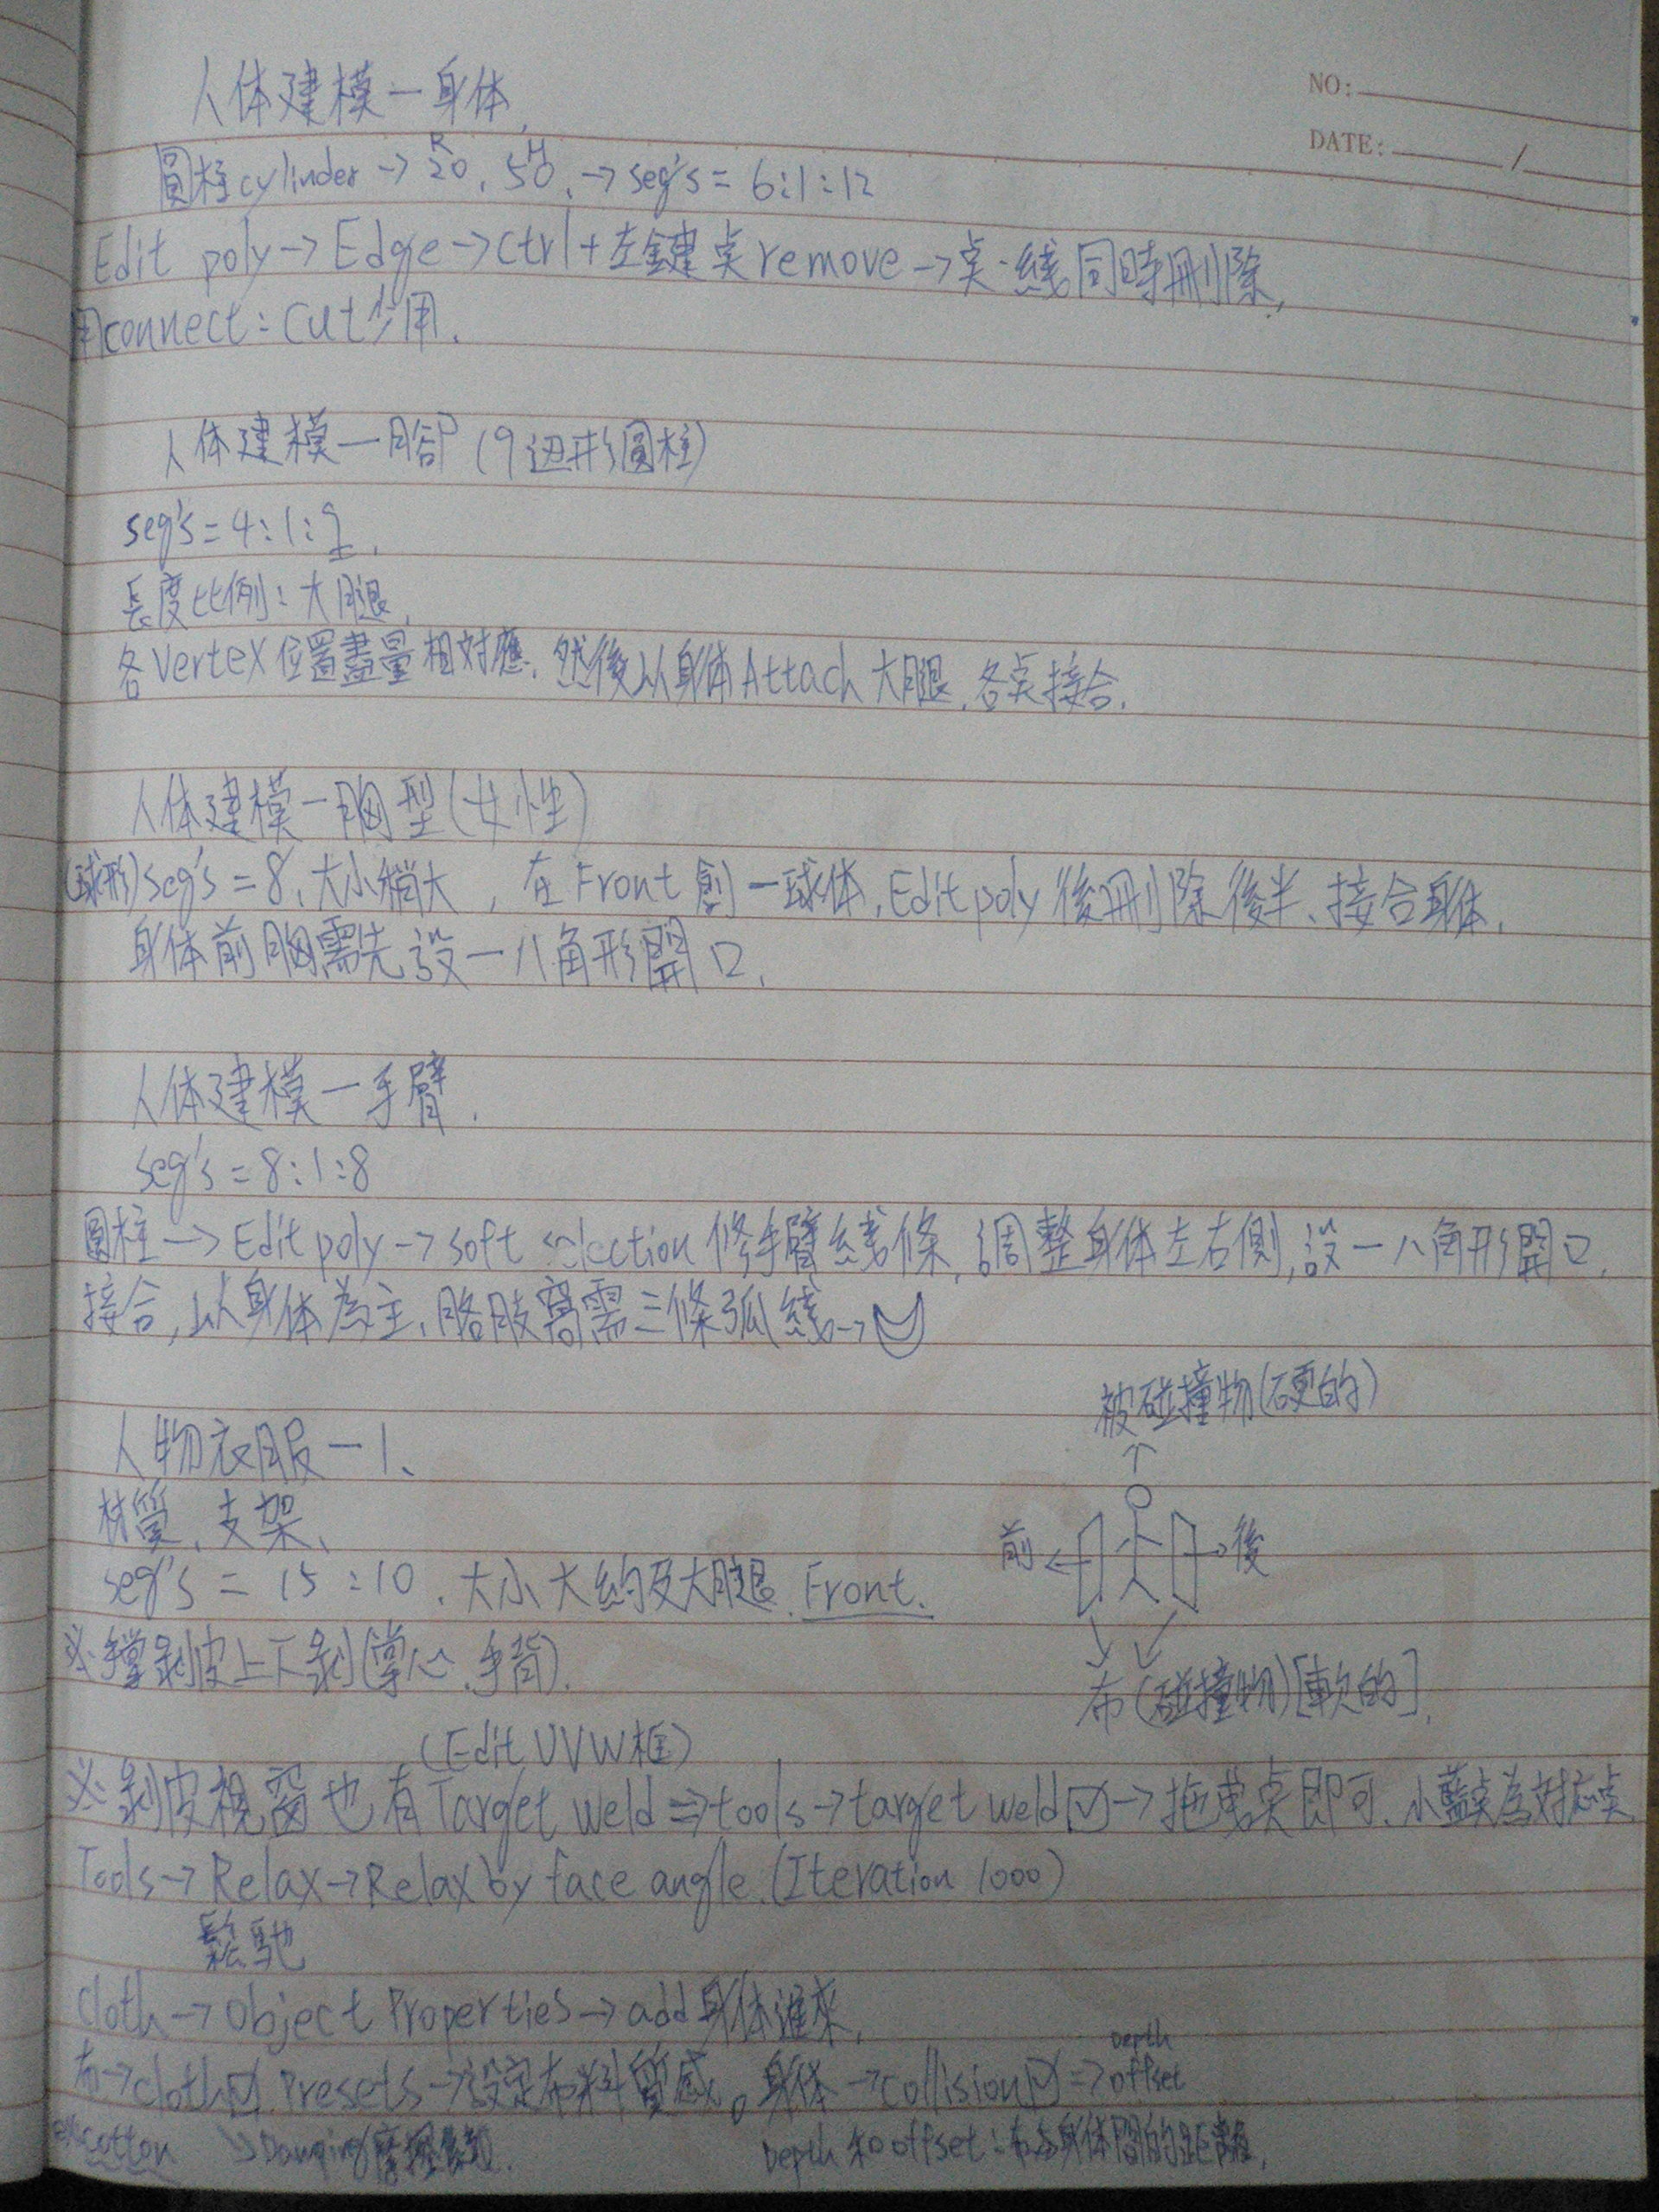 NO:
DATE: /
人体建模－身体
R H
圓柱cylinder→20、50、→seg's = 6:1:12
Edit poly→Edge→ctrl+左鍵桌remove→桌、綫同時刪除,
用connect:cut少用.
人体建模－腳(9边形圓柱)
seg's=4:1:9.
長度比例:大腿,
各vertex位置盡量相対應.然後以身体Attach大腿,各桌接合.
人体建模－胸型(女性)
(球形)seg's=8、大小稍大,在Front創一球体,Edit poly後刪除後半、接合身体.
身体前胸需先設一八角形開口.
人体建模－手臂.
seg's=8:1:8
圓柱→Edit poly→soft selection修手臂綫條,調整身体左右側,設一八角形開口.
接合,以身体為主、胳肢窩需三條弧綫→
被碰撞物(硬的)
人物衣服－1、
材質、支架、
前 後
seg's = 15:10.大小大約及大腿.Front.
※手掌剝皮上下剝(掌心、手背).
布(碰撞物)[軟的].
(Edit UVW框)
※剝皮視窗也有Target weld⇒tools→target weld☑→拖曳桌即可.小藍桌為対应桌
Tools→Relax→Relax by face angle.(Iteration 1000)
鬆馳
Cloth→Object Properties→add身体進來.
Depth
布→cloth☑.Presets→設定布料質感。身体→collision☑⇒offset
cotton →Damping
Depth和offset:布与身体間的距離.